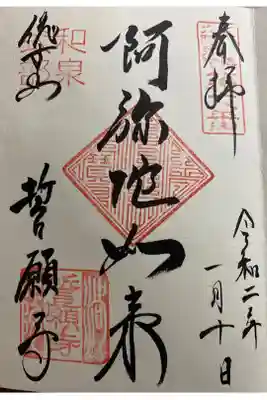 奉拝
令和二年
一月十日
阿弥陀如来
総本山
和泉
式部
誓願寺